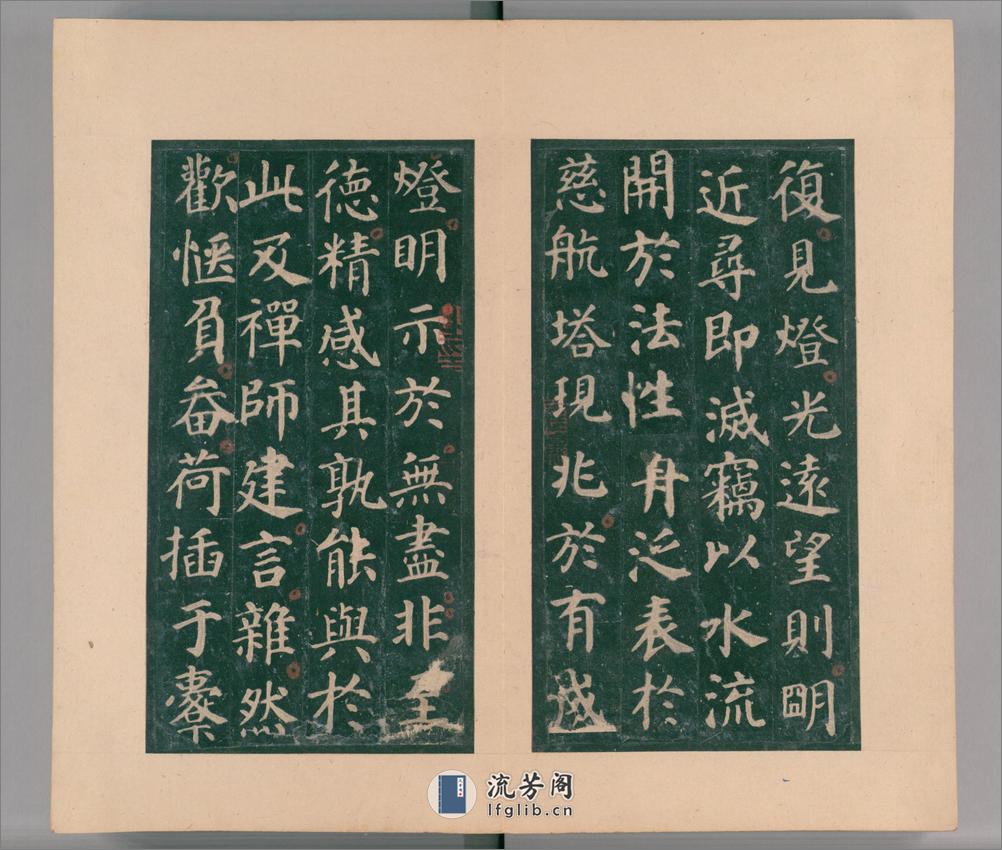 復見燈光遠望則朙
近尋即滅竊以水流
開於法性舟泛表於
慈航塔現兆於有成
燈明示於無盡非至
德精感其孰能與於
此及禪師建言雜然
歡愜負畚荷插于橐
流芳阁
lfglib.cn